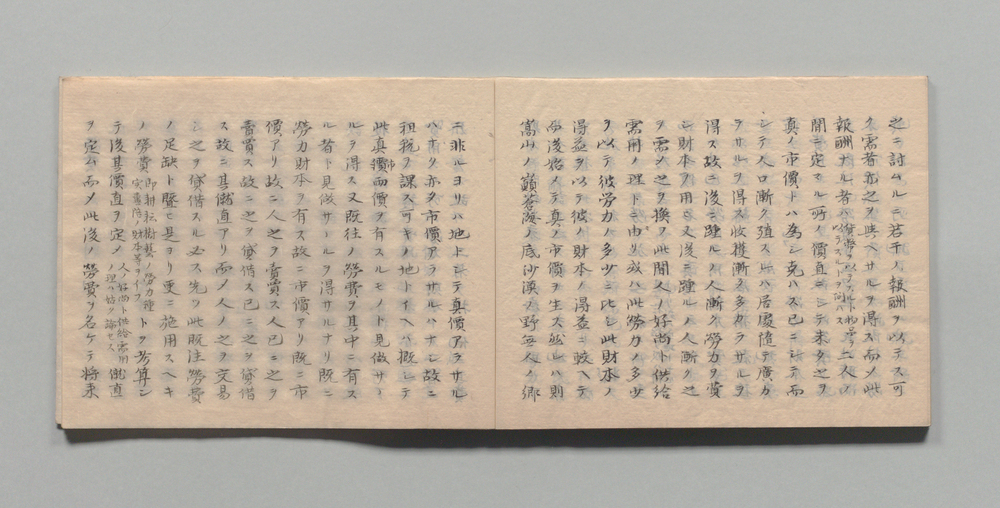 之ニ討ムルニ若干ノ報酬ヲ以テス可
ク需者亦之ヲ與ヘサルヲ得ス而メ此
報酬ナル者ハ二人ノ
間ニ定マル所ノ價直ニシテ未タ之ヲ
真ノ市價トハ為シ克ハス已ニシテ而
シテ人口漸ク殖ス此ハ居處隨テ廣カ
ラサルヲ得ス收獲漸ク多カラサルヲ
得ス故ニ後ニ踵ルノ人漸ク勞力ヲ費
シ財本ヲ用ヒ又後ニ踵ルノ人漸ク之
ヲ需メ之ヲ換フ此間人ノ好尚ト供給
需用ノ理トニ由リ或ハ此勞力ノ多少
ヲ以テ彼勞力ノ多少ニ比シ此財本ノ
得益ヲ以テ彼ノ財本ノ得益ニ較ヘテ
而後始メテ真ノ市價ヲ生ス然レハ則
嵩山ノ巓蒼海ノ底沙漠ノ野無人ノ郷
ニ非ルヨリハ地トシテ真價アラサル
ハナク亦タ市價アラサルハナシ故ニ
租税ヲ課ス可キノ地トイヘハ概シテ
此真價市價ヲ有スルモノト見做サヽ
ルヲ得ス又既往ノ勞費ヲ其中ニ有ス
ル者ト見做サヽルヲ得サルナリ既ニ
勞力財本ヲ有ス故ニ市價アリ既ニ市
價アリ故ニ人之ヲ賣買ス人已ニ之ヲ
賣買ス故ニ之ヲ貸借ス已ニ之ヲ貸借
ス故ニ其僦直アリ而メ人ノ之ヲ交易
シ之ヲ貸借スル必ス先ツ此既注勞費
ノ足缺ト驗ヒ是ヨリ更ニ施用スヘキ
ノ勞費即耕耘樹藝ノ勞力種トヲ考算シ
テ後其價直ヲ定メ人ノ好尚ト供給需用ノ理ハ姑ク論セス僦直
ヲ定ム而メ此後ノ勞費ヲ名ケテ將来